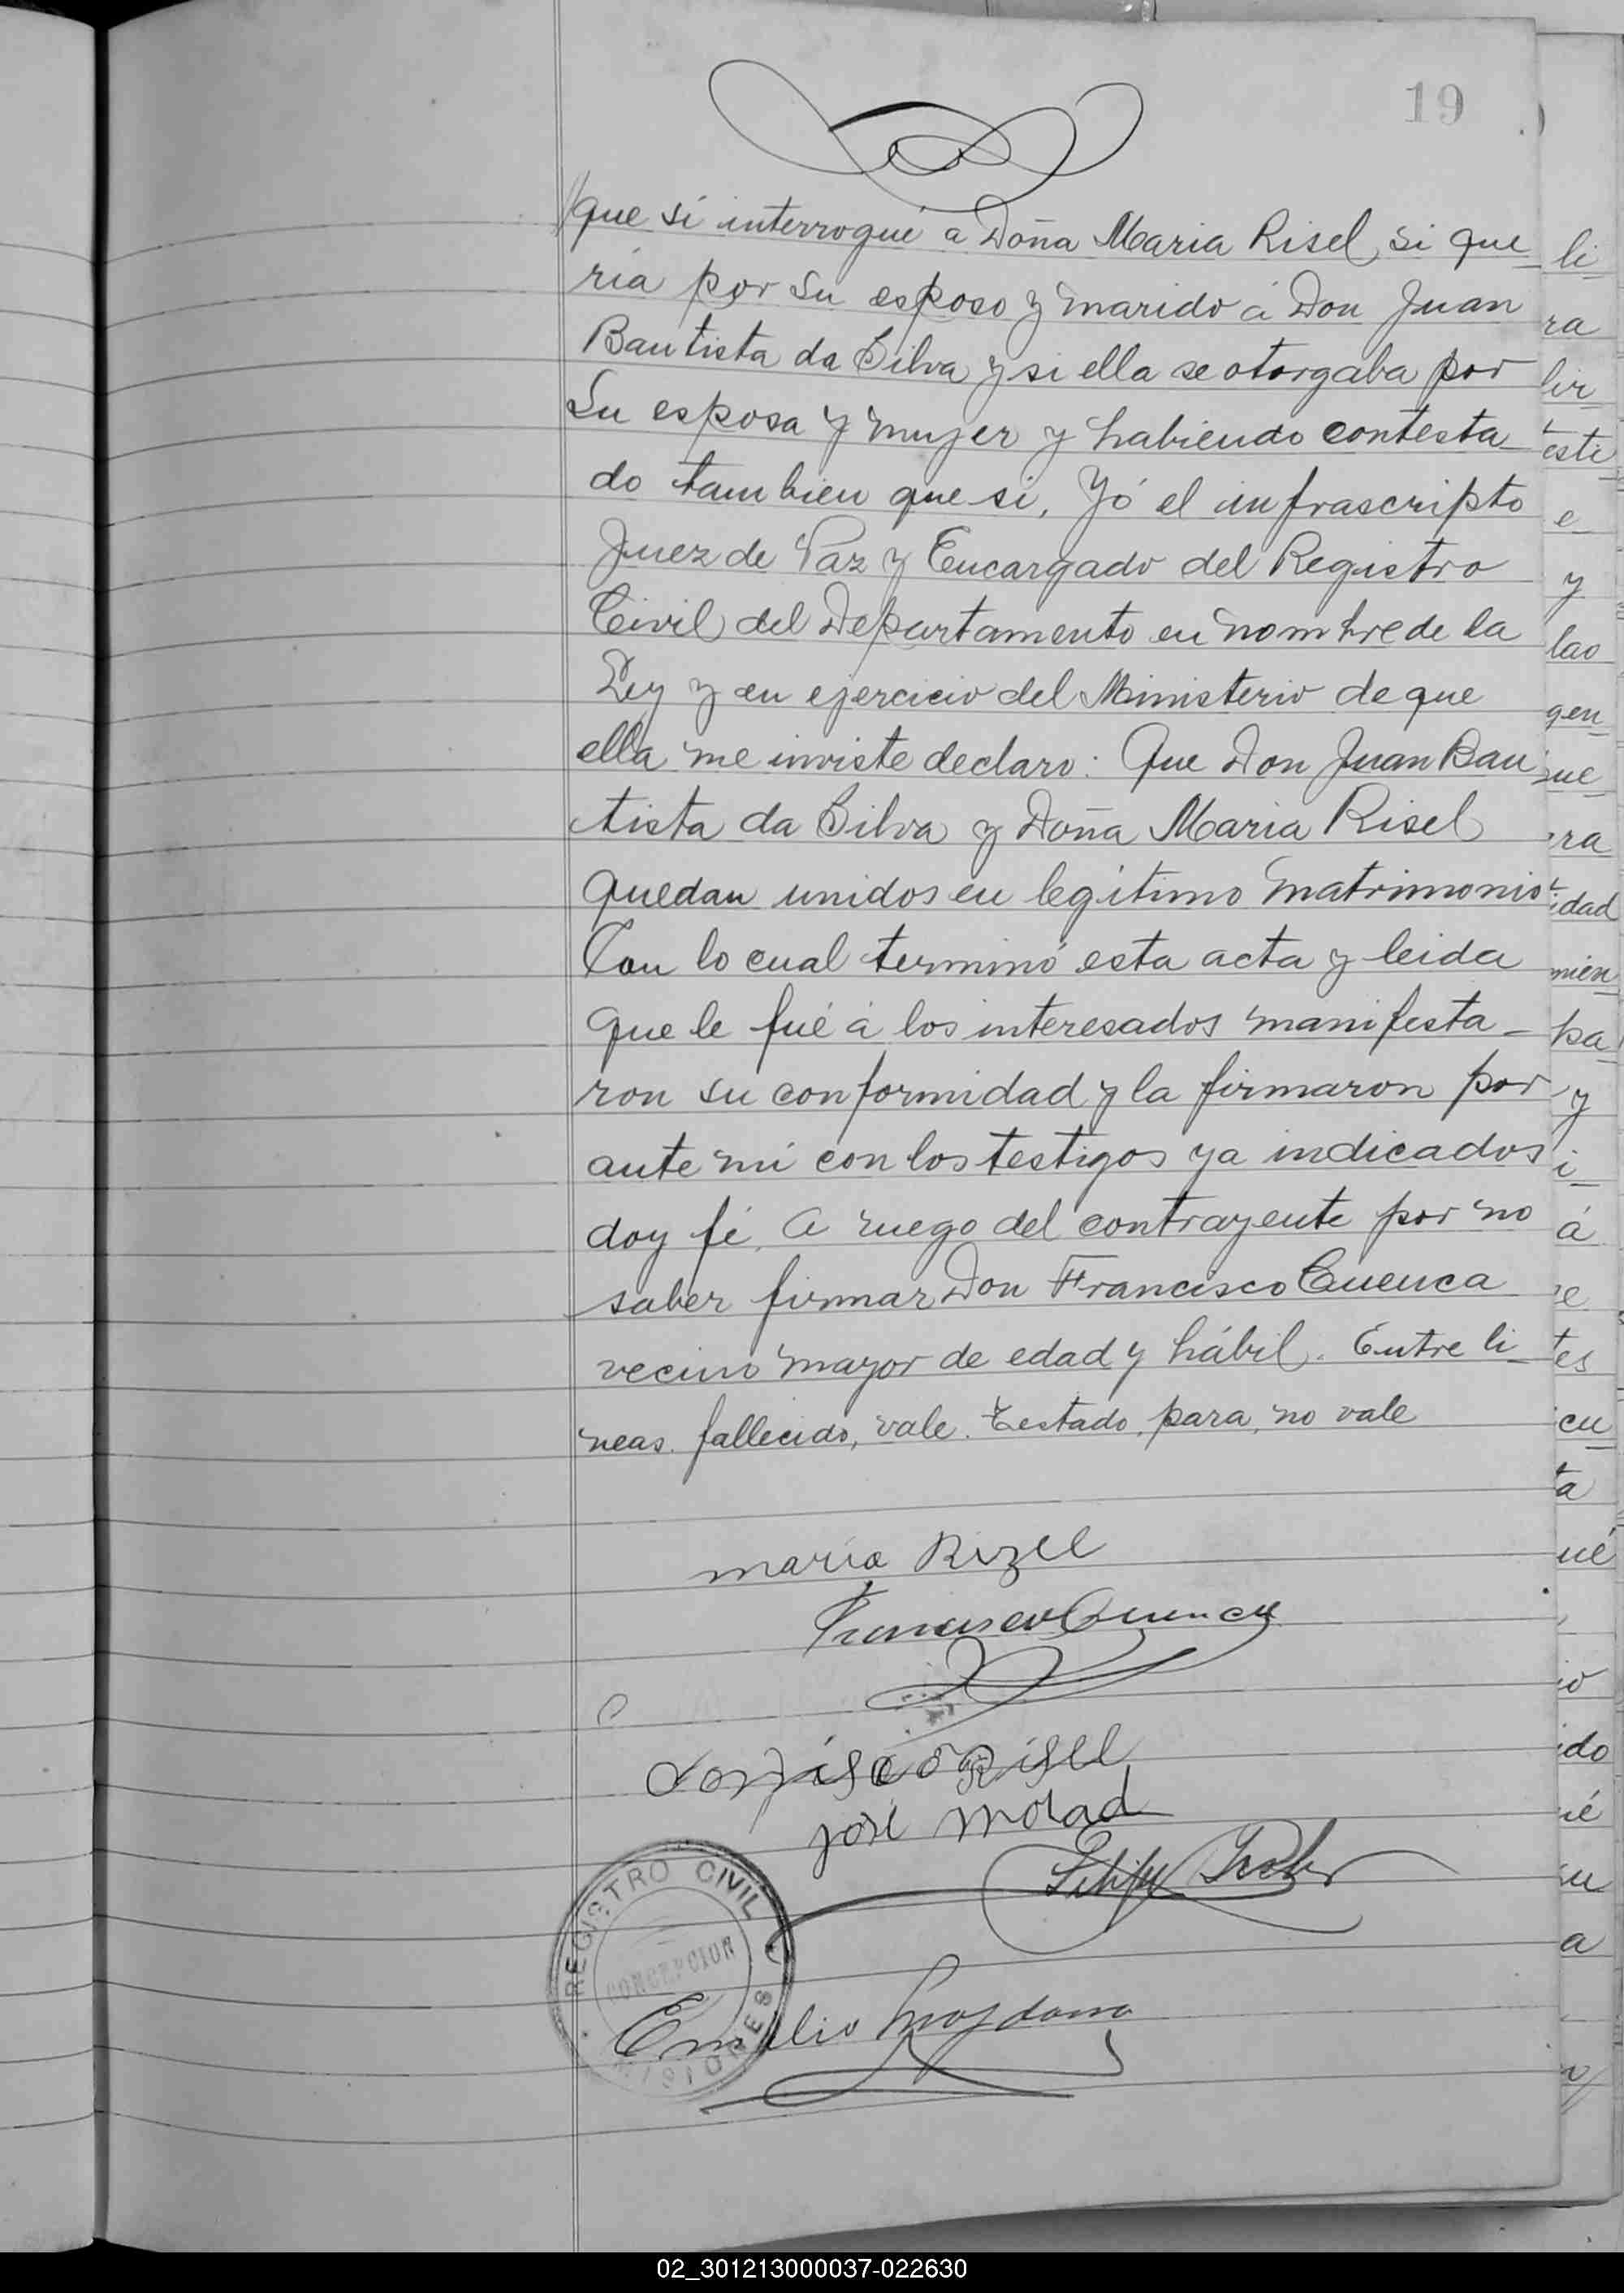 19
que sí interrogué a Doña Maria Risel si que_
ria por su esposo y marido á Don Juan
Bautista da Silva y si ella se otorgaba por
Su esposa y mujer y habiendo contesta_
do tambien que si, Yó el infrascripto
Juez de Paz y Encargado del Registro
Civil del Departamento en nombre de la
Ley y en ejercicio del Ministerio de que
ella me inviste declaro: Que Don Juan Bau
tista da Silva y Doña Maria Risel
quedan unidos en legítimo matrimonio
Con lo cual terminó esta acta y leida
que le fué á los interesados manifesta_
ron su conformidad y la firmaron por
ante mi con los testigos ya indicados
doy fé. A ruego del contrayente por no
saber firmar Don Francisco Cuenca
vecino mayor de edad y hábil. Entre li_
neas. fallecido, vale. Testado, para, no vale
maria Rizel
Francisco Cuenca
Risel
José Morad
Emilio
REGISTRO CIVIL
CONCEPCION
MISIONES
li_
ra
e
y
lao
gen_
ra
idad
mien_
pa_
y
i_
á
e
tes
cu_
ta
ué
io
ido
su
a
02_301213000037-022630